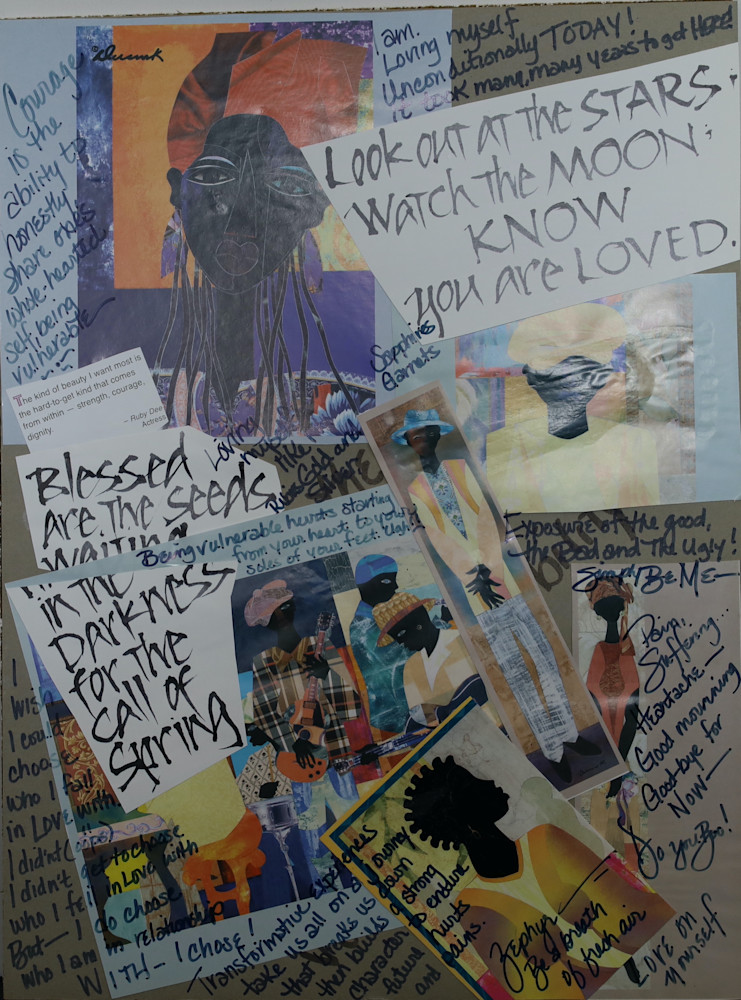 Courage
is the
ability to
honestly
share one's
whole hearted
self, being
vulnerable
am.
Loving myself
unconditionally TODAY!
it took many, many years to get HERE!
Look out at the STARS;
Watch the MOON;
KNOW
you are LOVED.
The kind of beauty I want most is
the hard-to-get kind that comes
from within — strength, courage,
dignity.
– Ruby Dee
Actress
Sapphires
Garnets
Loving
like
Rose Gold and
Silver
Blessed
are the seeds
waiting
in the
Darkness
for the
call of
Spring
Being vulnerable hurts starting
from your heart to your
soles of your feet. Ugh!
Exposure of the good,
the Bad and The Ugly!
Simply Be ME—
Pain,
Suffering...
Heartache—
Good mourning
Goodbye for
Now—
Do you Boo!
Love on
yourself
I
wish
I could
choose
who I fall
in Love with.
I didn't (oops)
get to choose
I didn't
who I fell in Love with
But — I do choose
who I am in relationship
WITH — I chose!
Transformative experiences
take us all on a journey
that breaks us down
then builds a strong
character to endure
future hurts
and pains.
Zephyr—
Be a breath
of fresh air